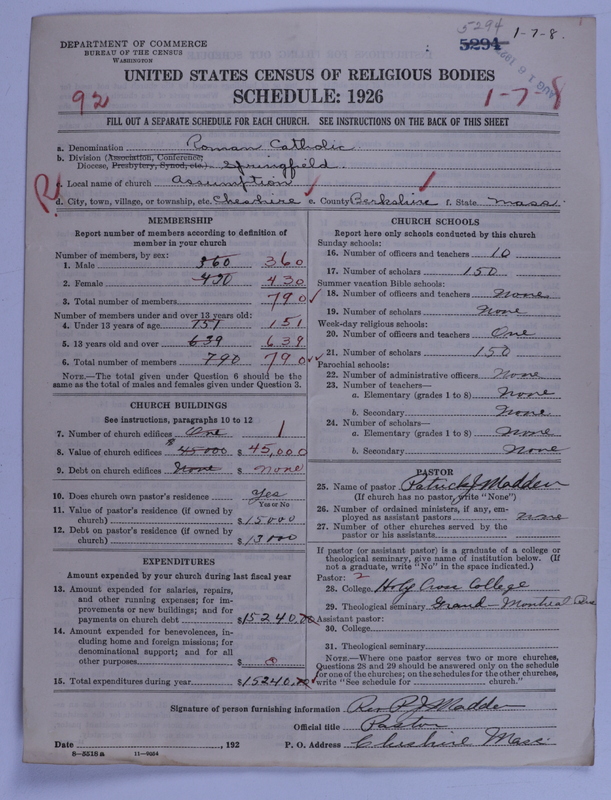 5294
DEPARTMENT OF COMMERCE 5294 1-7-8.
BUREAU OF THE CENSUS
WASHINGTON
UNITED STATES CENSUS OF RELIGIOUS BODIES
92 SCHEDULE: 1926 1-7-8
FILL OUT A SEPARATE SCHEDULE FOR EACH CHURCH. SEE INSTRUCTIONS ON THE BACK OF THIS SHEET
a. Denomination Roman Catholic
b. Division (Association, Conference,
Diocese, Presbytery, Synod, etc.) Springfield.
c. Local name of church Assumption
d. City, town, village, or township, etc. Cheshire e. County Berkshire f. State Mass.
MEMBERSHIP
Report number of members according to definition of
member in your church
Number of members, by sex:
1. Male 360 360
2. Female 430 430
3. Total number of members 790
Number of members under and over 13 years old:
4. Under 13 years of age 151 151
5. 13 years old and over 639 639
6. Total number of members 790 790
NOTE.—The total given under Question 6 should be the
same as the total of males and females given under Question 3.
CHURCH BUILDINGS
See instructions, paragraphs 10 to 12
7. Number of church edifices One 1
8. Value of church edifices $45000 $45,000
9. Debt on church edifices None $ none
10. Does church own pastor's residence Yes
Yes or No
11. Value of pastor's residence (if owned by
church) $15000
12. Debt on pastor's residence (if owned by
church) $13000
EXPENDITURES
Amount expended by your church during last fiscal year
13. Amount expended for salaries, repairs,
and other running expenses; for im-
provements or new buildings; and for
payments on church debt $15240.00
14. Amount expended for benevolences, in-
cluding home and foreign missions; for
denominational support; and for all
other purposes $ 0
15. Total expenditures during year $15240.00
CHURCH SCHOOLS
Report here only schools conducted by this church
Sunday schools:
16. Number of officers and teachers 10
17. Number of scholars 150
Summer vacation Bible schools:
18. Number of officers and teachers None
19. Number of scholars None
Week-day religious schools:
20. Number of officers and teachers One
21. Number of scholars 150
Parochial schools:
22. Number of administrative officers None
23. Number of teachers—
a. Elementary (grades 1 to 8) None
b. Secondary None
24. Number of scholars—
a. Elementary (grades 1 to 8) None
b. Secondary None
PASTOR
25. Name of pastor Patrick J Madden
(If church has no pastor, write "None")
26. Number of ordained ministers, if any, em-
ployed as assistant pastors none
27. Number of other churches served by the
pastor or his assistants
If pastor (or assistant pastor) is a graduate of a college or
theological seminary, give name of institution below. (If
not a graduate, write "No" in the space indicated.)
Pastor: 2
28. College Holy Cross College
29. Theological seminary Grand—Montreal
Assistant pastor:
30. College
31. Theological seminary
NOTE.—Where one pastor serves two or more churches,
Questions 28 and 29 should be answered only on the schedule
for one of the churches; on the schedules for the other churches,
write "See schedule for church."
Signature of person furnishing information Rev P J Madden
Official title Pastor
Date , 192 P. O. Address Cheshire Mass.
8—5518a 11—9054